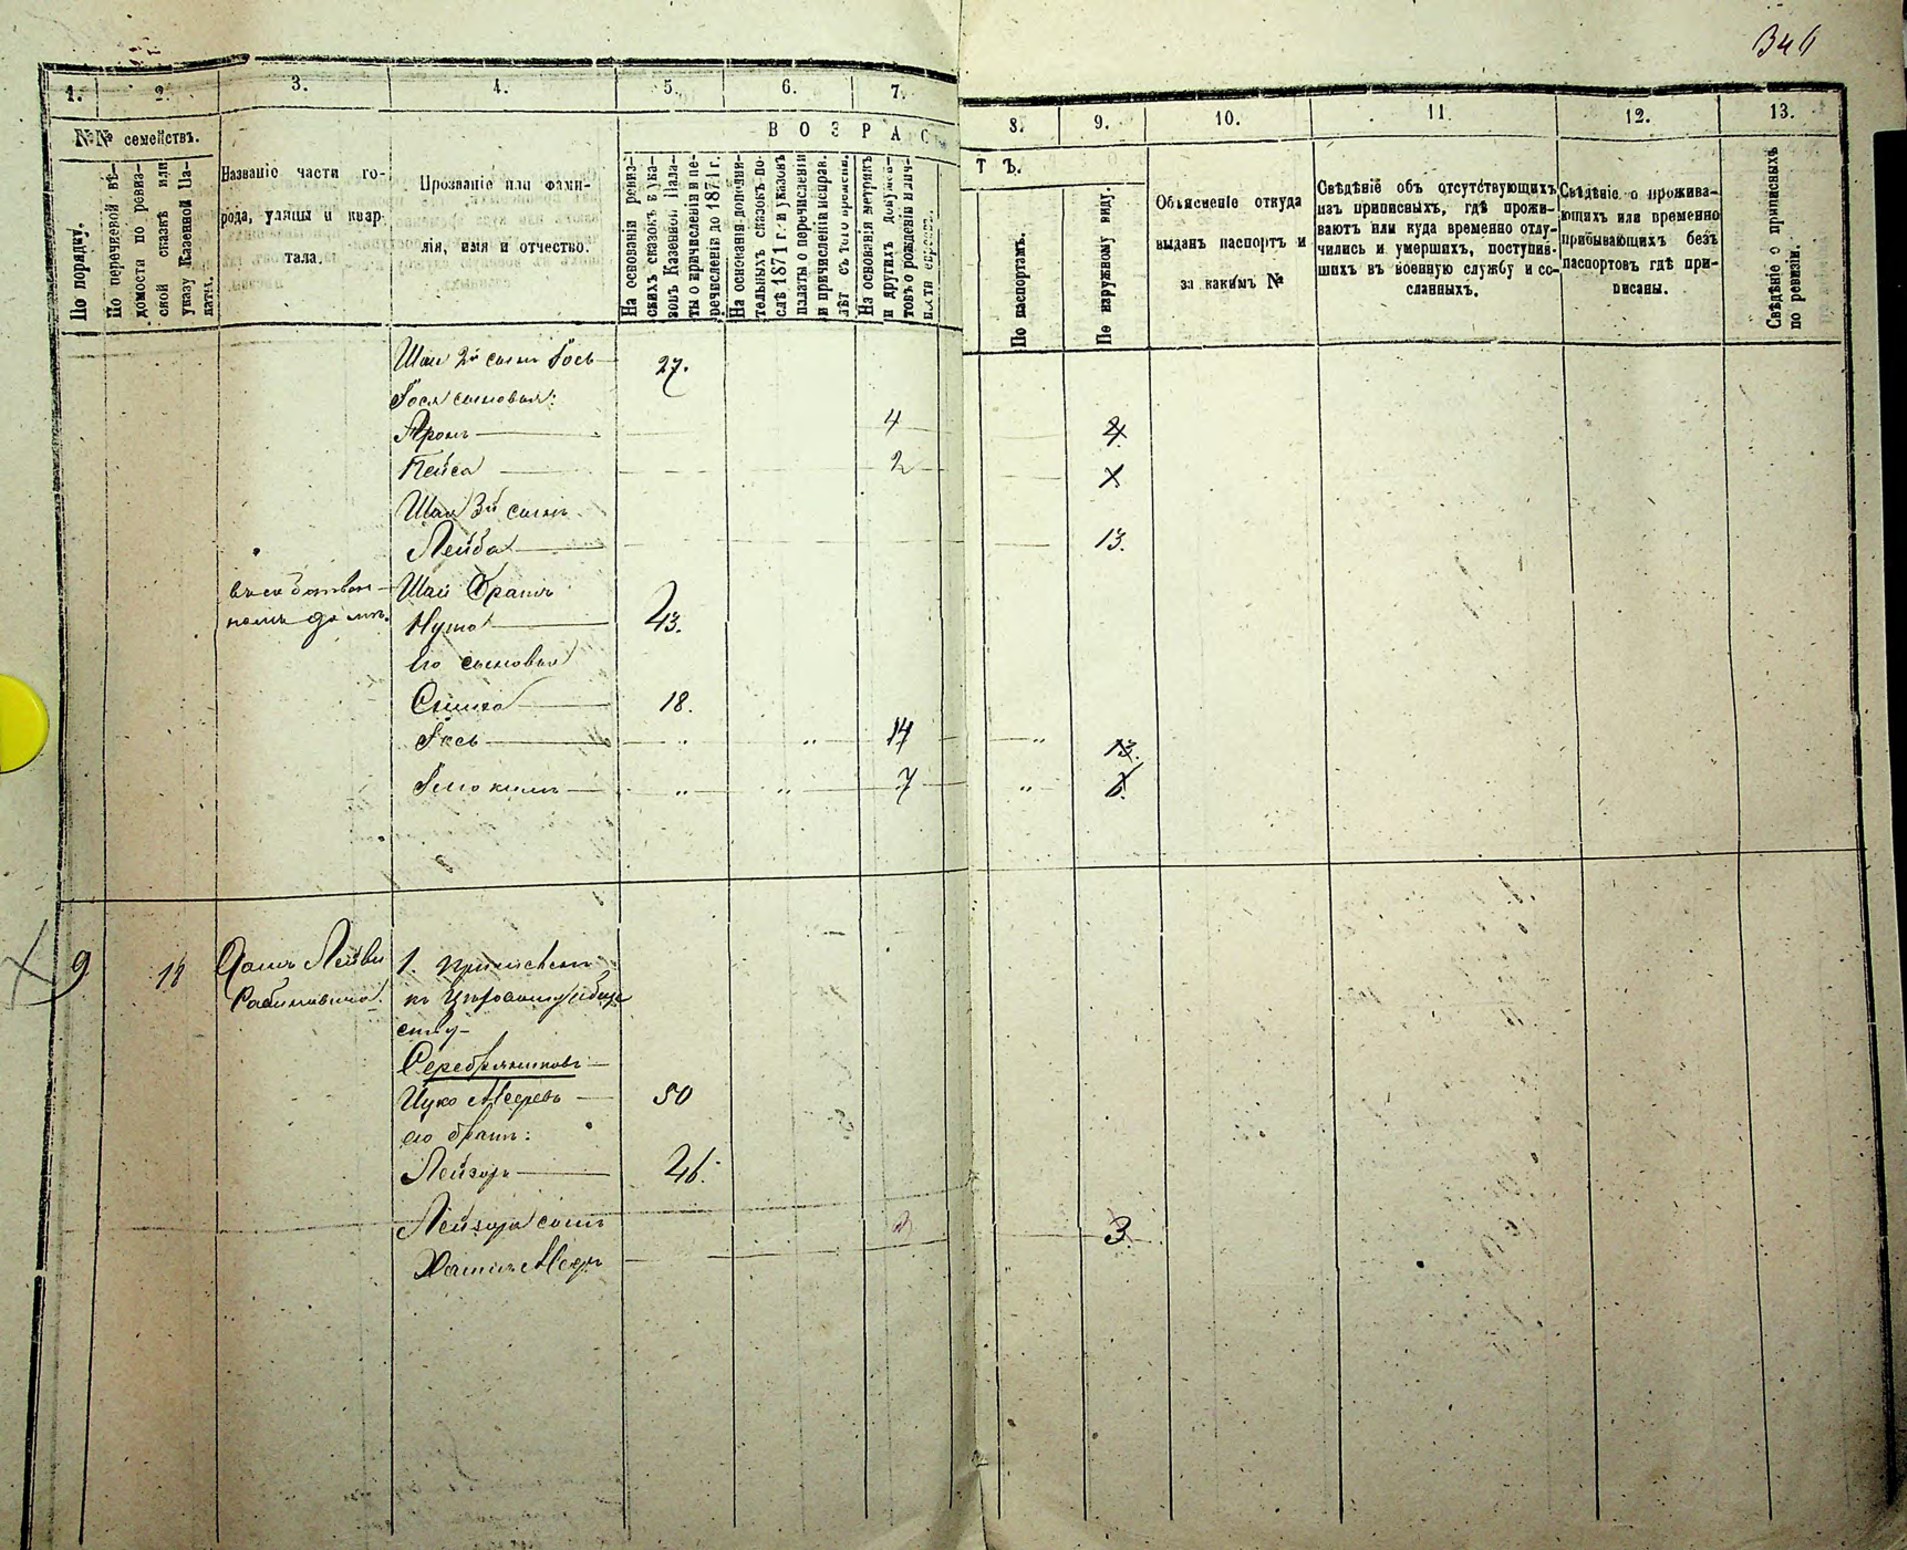 346
1. 2. 3. 4. 5. 6. 7. 8. 9. 10. 11. 12. 13.
№№ семействъ.
В О З Р А С Т Ъ.
По порядку.
По перечневой вѣ-
домости по ревиз-
ской сказкѣ или
указу Казенной Па-
латы.
Названіе части го-
рода, улицы и квар-
тала.
Прозваніе или фами-
лія, имя и отчество.
На основаніи ревиз-
скихъ сказокъ и ука-
зовъ Казенной Пала-
ты о причисленіи и пе-
речисленіи до 1871 г.
На основаніи дополни-
тельныхъ сказокъ по-
слѣ 1871 г. и указовъ
палаты о перечисленіи
и причисленіи исправ.
лѣт съ того времени.
На основаніи метрикъ
и другихъ докумен-
товъ о рожденіи и лич-
По паспортамъ.
По наружному виду.
Объясненіе откуда
выданъ паспортъ и
за какимъ №
Свѣдѣніе объ отсутствующихъ
изъ приписныхъ, гдѣ прожи-
ваютъ или куда временно отлу-
чились и умершихъ, поступив-
шихъ въ военную службу и со-
сланныхъ.
Свѣдѣніе о прожива-
ющихъ или временно
прибывающихъ безъ
паспортовъ гдѣ при-
писаны.
Свѣдѣніе о приписныхъ
по ревизіи.
Шаи 2й сынъ Іось 27.
Іося сыновья:
Аронъ 4 4
Пейса 2
Шаи 3й сынъ
Лейба 13.
въ собствен-
номъ домѣ.
Шаи братъ
Нута 43.
Его сыновья
Симха 18.
Іось „ „ 14 „ 13.
„ „ 7 „ 6.
9 14 Домъ Лейви
Рабиновича.
1. Причислен
къ
ству
Серебрянниковъ
Ицко Мееровъ 50
его братъ:
Лейзоръ 26.
Лейзора сынъ 3 3.
Хаимъ Меер